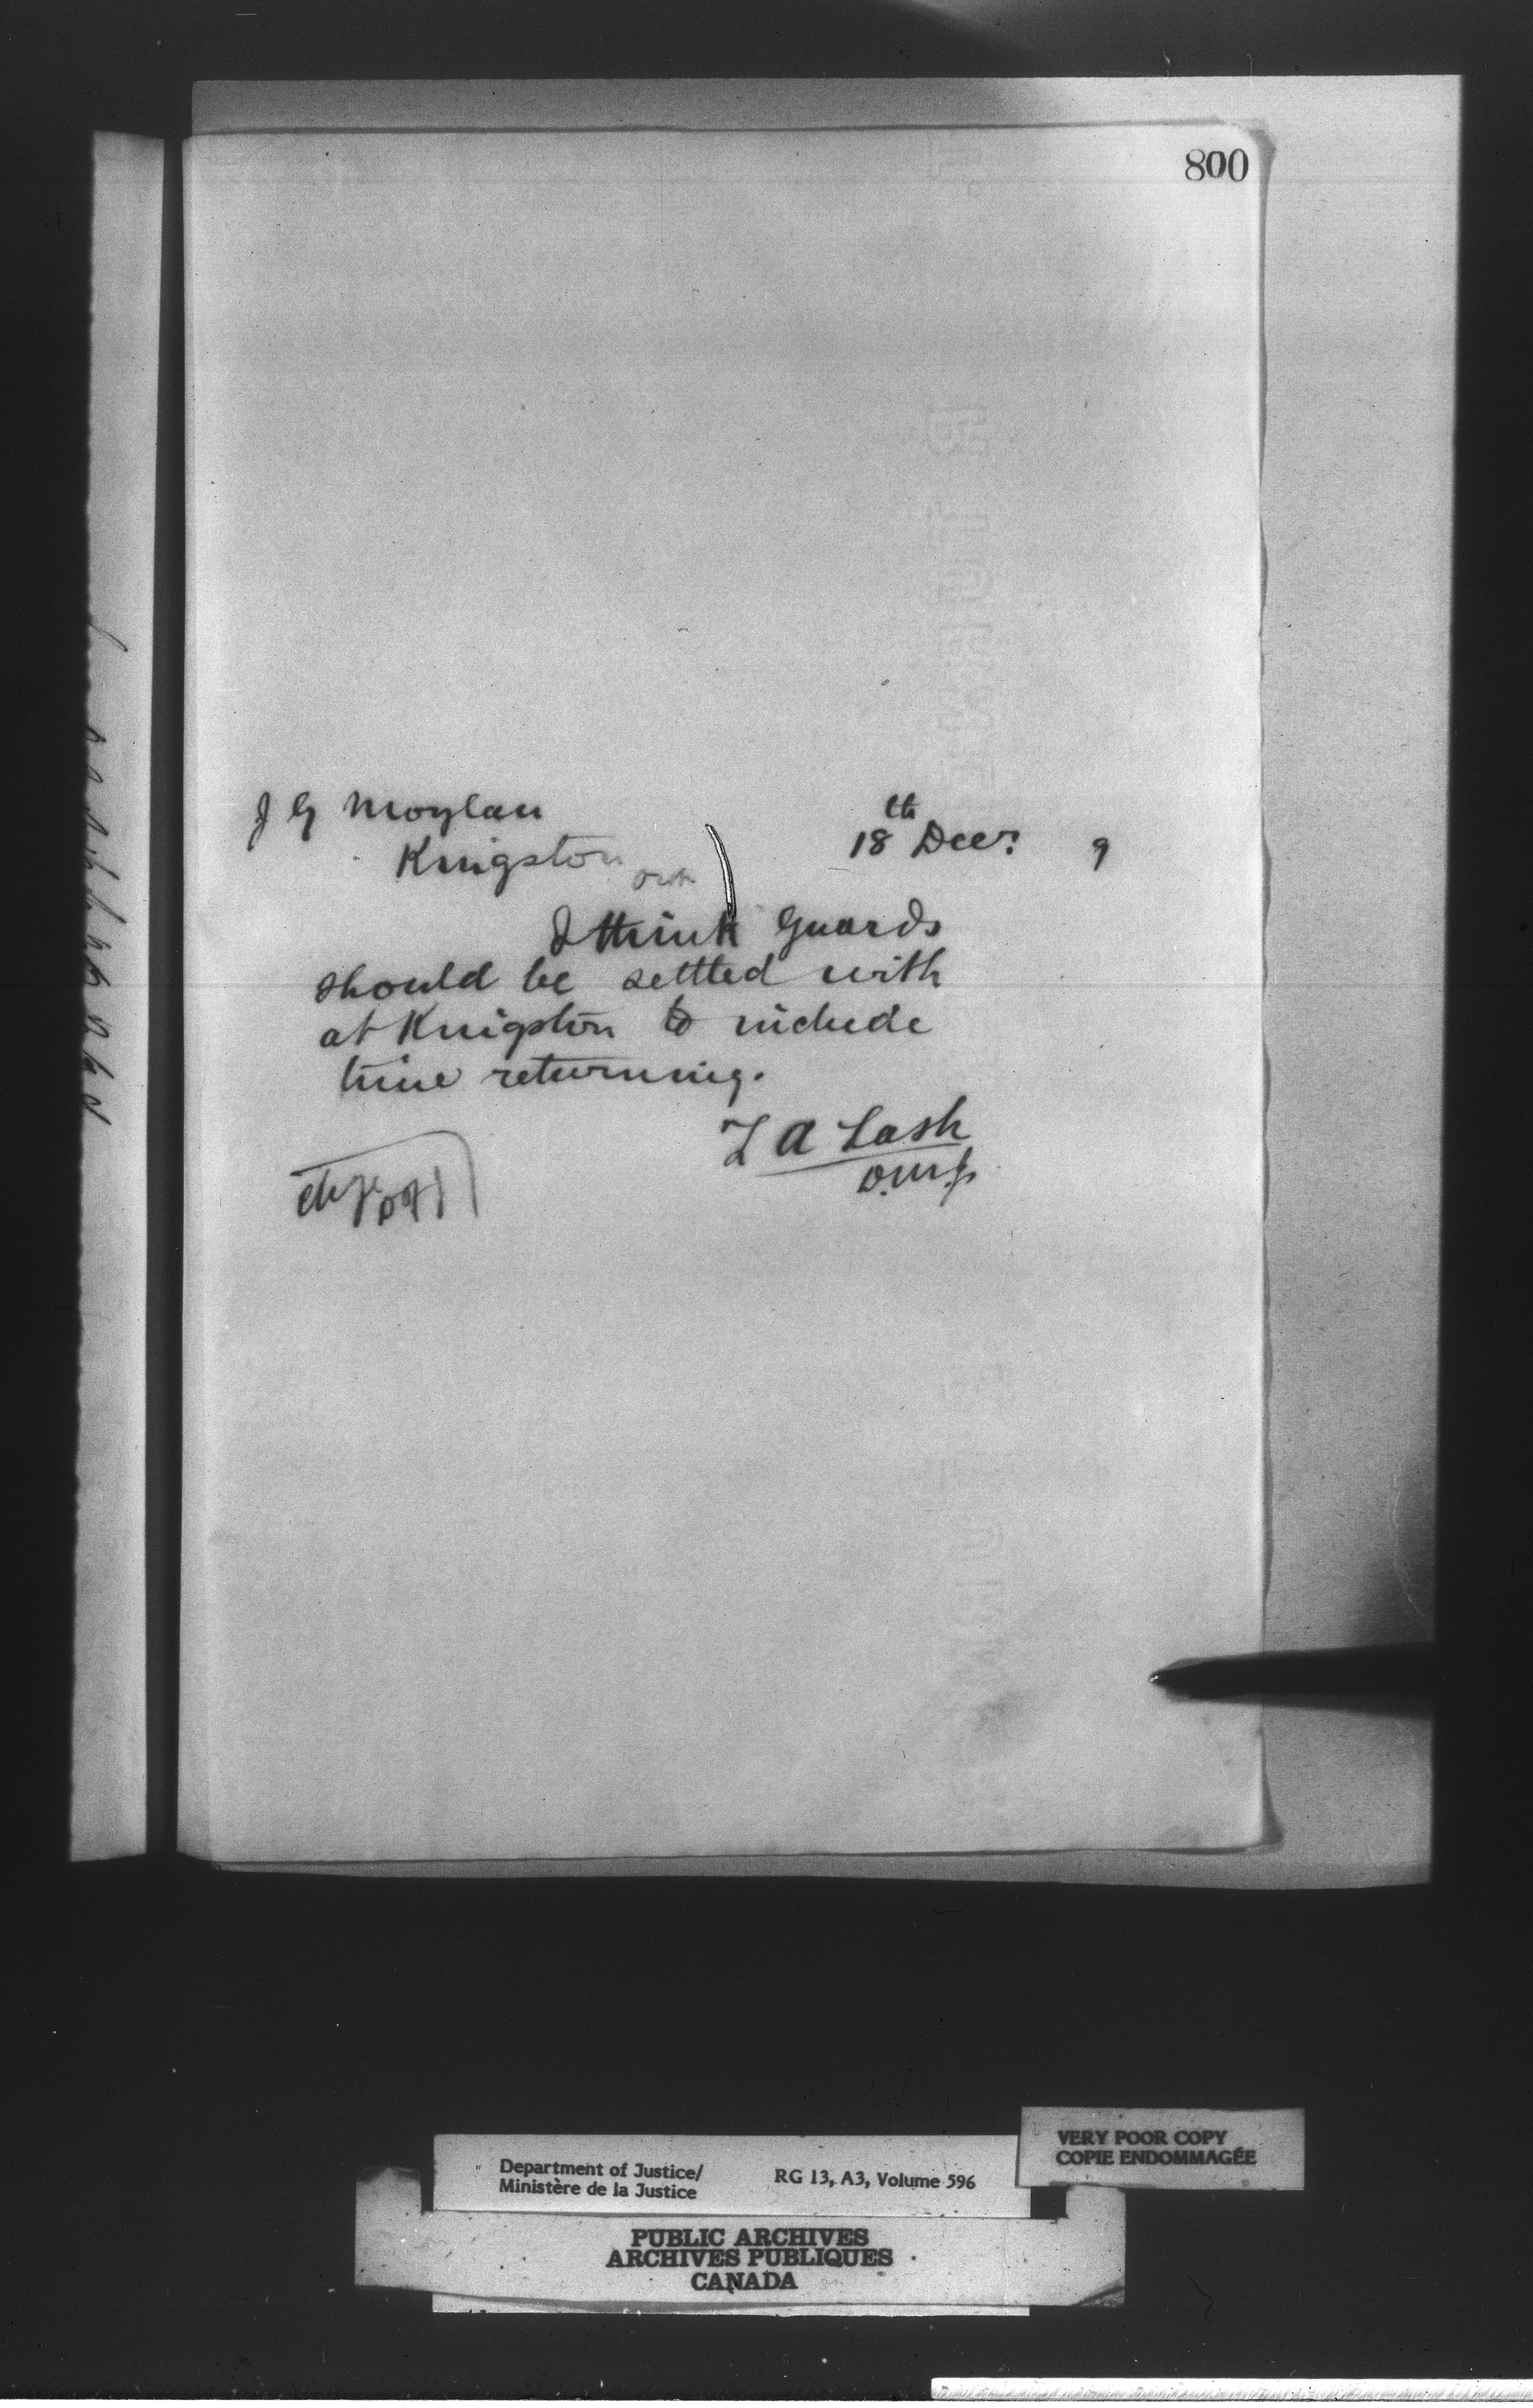 800
J G Moylan
18th Decr. 9
Kingston
Ont
I think Guards
should be settled with
at Kingston to include
time returning.
Z A Lash
D.M.J.
VERY POOR COPY
COPIE ENDOMMAGÉE
Department of Justice/
Ministère de la Justice
RG 13, A3, Volume 596
PUBLIC ARCHIVES
ARCHIVES PUBLIQUES
CANADA